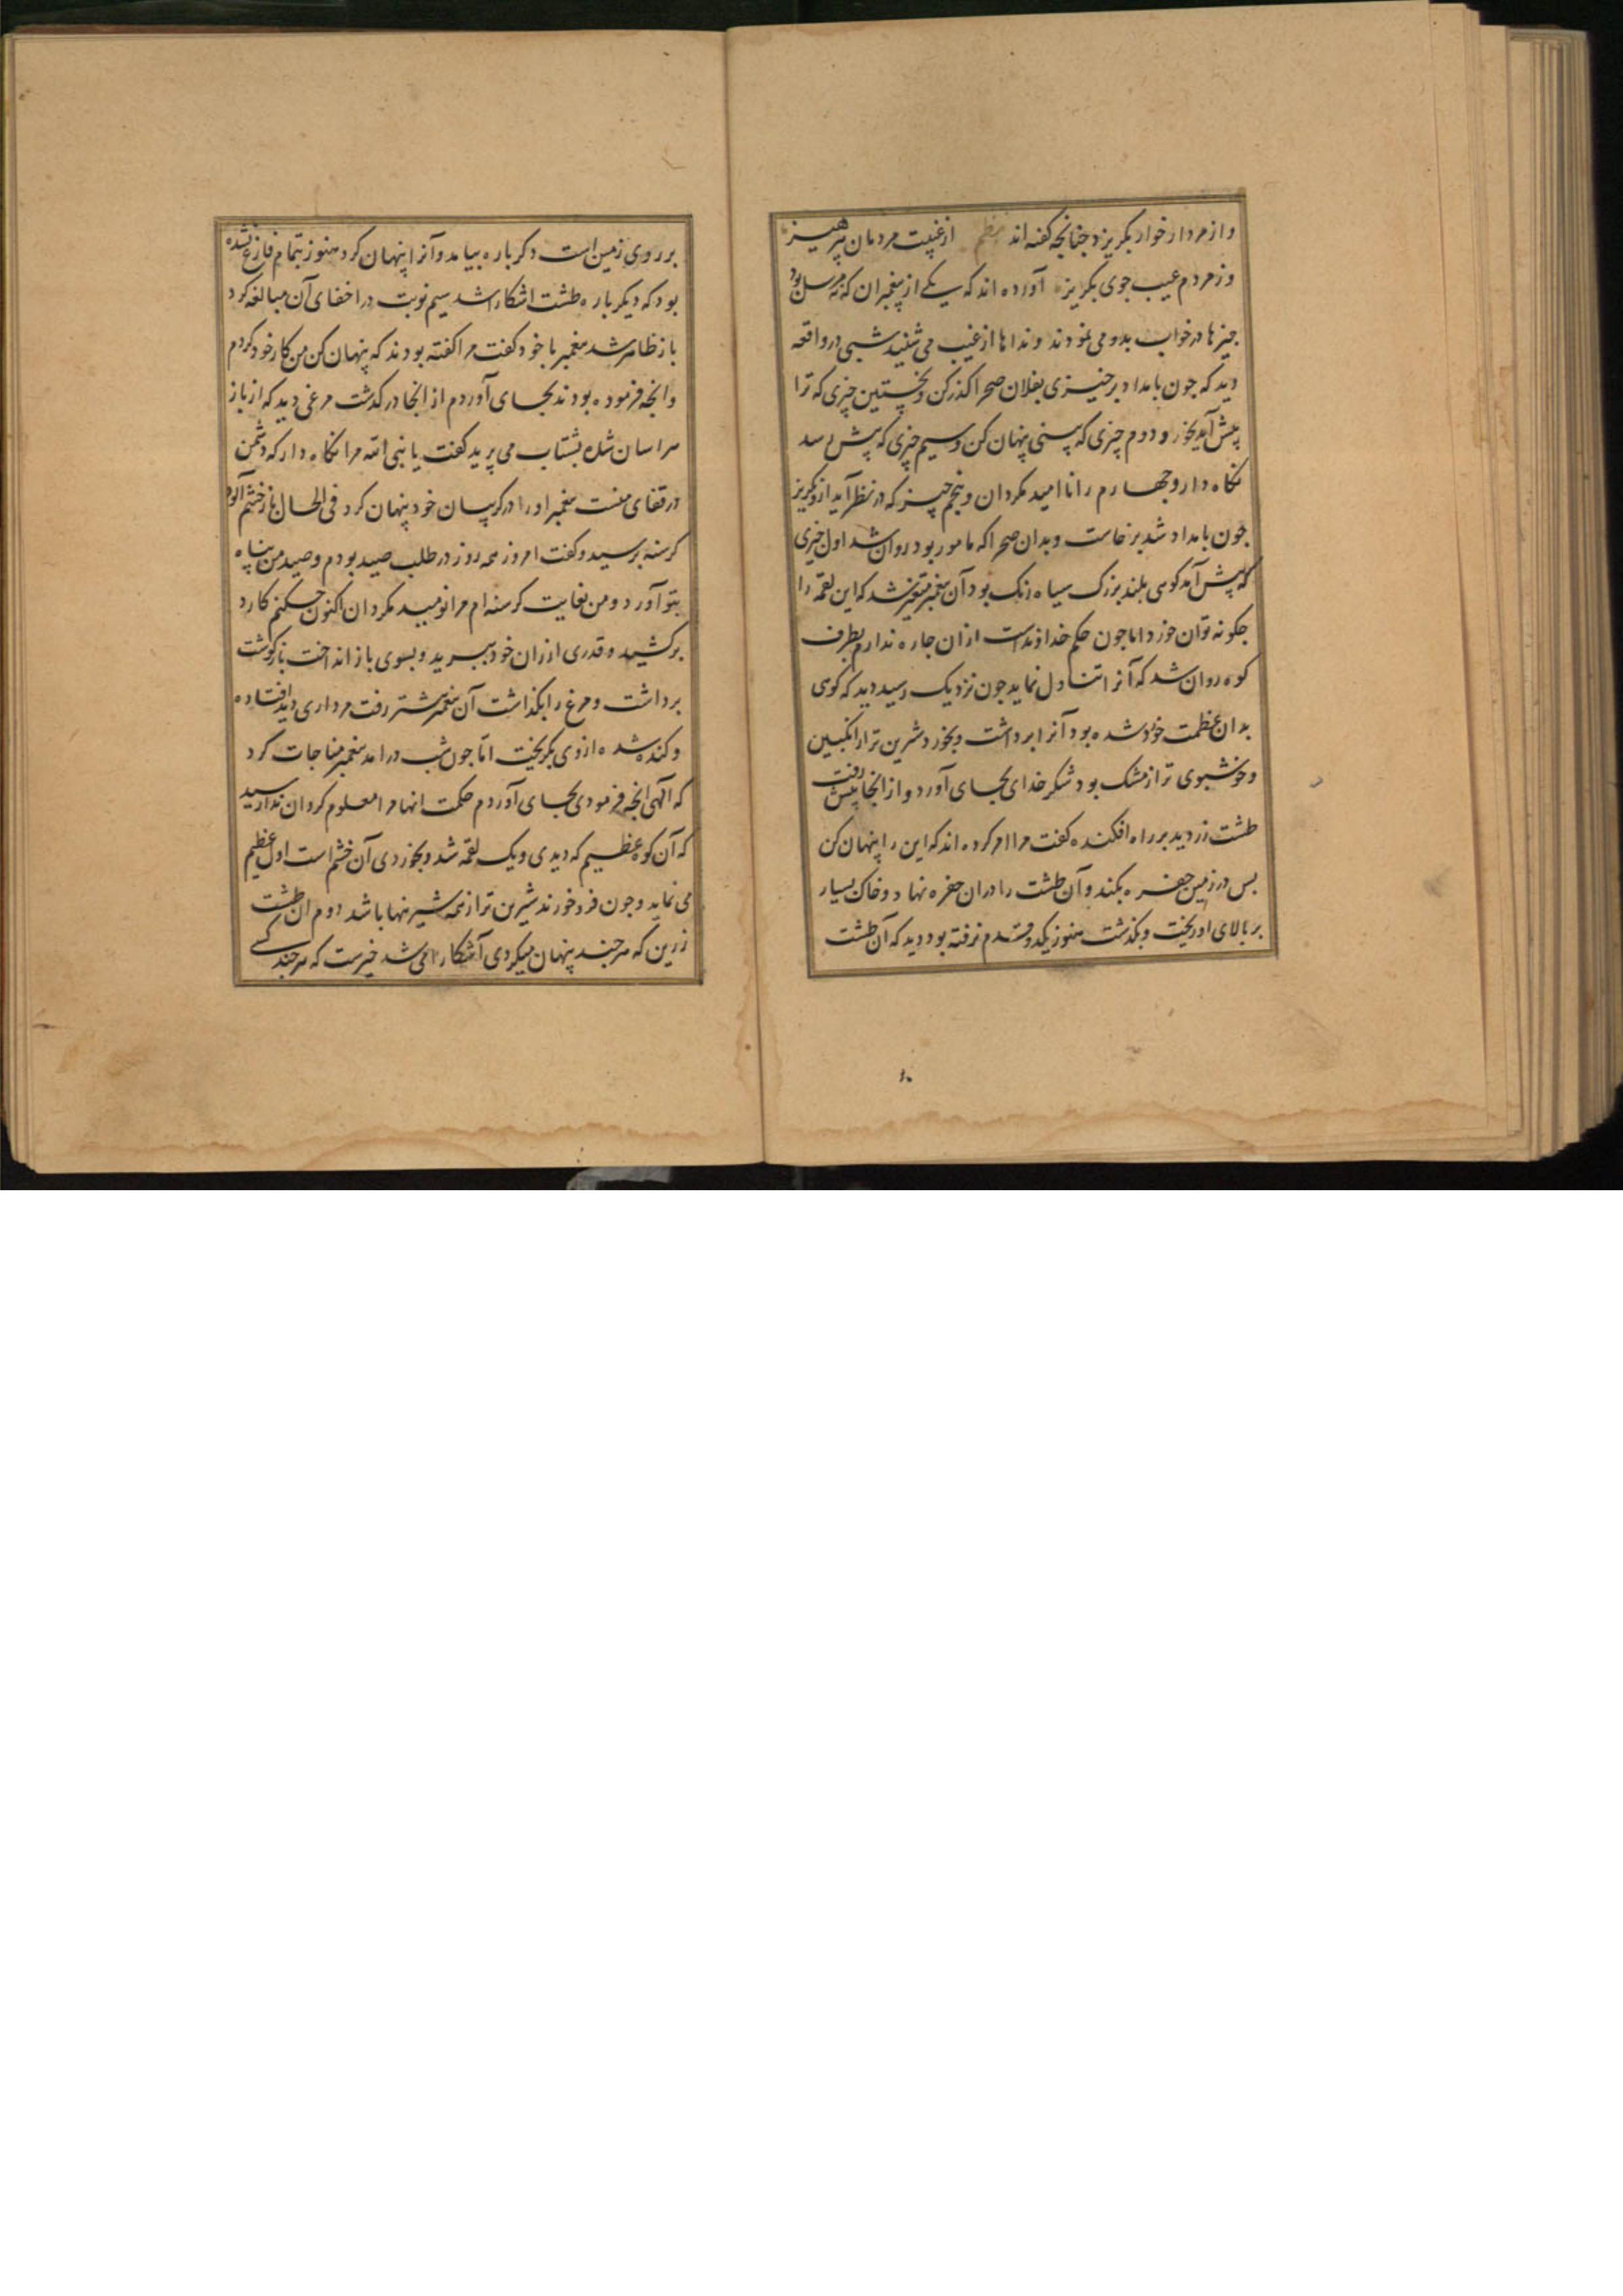 و از مردار خوار بکریزد جنانجه کفته اند نظم از غیبت مردمان بپرهیز
وز مردم عیب جوی بکریز آورده اند که یکے از پیغمبران که نه مرسل بود
جیزها در خواب بدو می نمودند و نداها از غیب می شنید شبی در واقعه
دید که جون بامداد برخیزی بفلان صحرا کذر کن و نخستین چیزی که ترا
پیش آید بخور و دوم چیزی که ببینی پنهان کن و سیم چیزی که پیش رسد
نکاه دار و جهارم را ناامید مکردان و پنجم جیز که در نظر آید ازو بکریز
جون بامداد شد برخاست و بدان صحرا که مامور بود روان شد اول جیزی
که پیش آمد کوهی بلند بزرک سیاه رنک بود آن پیغمبر متحیر شد که این لقمه را
جکونه توان خورد اما جون حکم خداوندست ازان جاره ندارم بطرف
کوه روان شد که آنرا تناول نماید جون نزدیک رسید دید که کوهی
بدان عظمت خورد شده بود آنرا برداشت و بخورد شیرین تر از انکبین
و خوشبوی تر از مشک بود شکر خدای بجای آورد و از انجا پیش رفت
طشت زر دید بر راه افکنده کفت مرا امر کرده اند که این را پنهان کن
بس در زمین حفره بکند و آن طشت را دران حفره نهاد و خاک بسیار
بر بالای او ریخت و بکذشت هنوز یکدو قدم نرفته بود دید که آن طشت
بر روی زمین است دکرباره بیامد و آنرا پنهان کرد هنوز بتمام فارغ نشده
بود که دیکر باره طشت اشکارا شد سیم نوبت در اخفای آن مبالغه کرد
باز ظاهر شد پیغمبر با خود کفت مرا کفته بودند که پنهان کن من کار خود کردم
وانجه فرموده بودند بجای آوردم از انجا در کذشت مرغی دید که از باز
هراسان شده بشتاب می پرید کفت یا نبی الله مرا نکاه دار که دشمن
در قفای منست پیغمبر او را در کریبان خود پنهان کرد فی الحال باز خشم آلود
کرسنه برسید و کفت امروز همه روز در طلب صید بودم و صید من پناه
بتو آورد و من بغایت کرسنه ام مرا نومید مکردان اکنون جکنم کارد
برکشید و قدری از ران خود ببرید و بسوی باز انداخت باز کوشت
برداشت و مرغ را بکذاشت آن پیغمبر پیشتر رفت مرداری دید افتاده
و کنده شده ازوی بکریخت اما جون شب درامد پیغمبر مناجات کرد
که الهی انجه فرمودی بجای آوردم حکمت انها مرا معلوم کردان ندا رسید
که آن کوه عظیم که دیدی و یک لقمه شد و بخوردی آن خشم است اول عظیم
می نماید و جون فرو خورند شیرین تر از همه شیرینها باشد دوم ان طشت
زرین که هر جند پنهان میکردی آشکارا می شد خیرست که هر جند کسے
۱۰